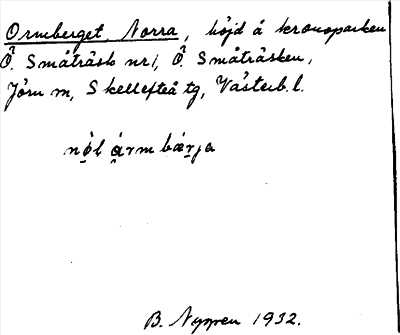 Ormberget, Norra, höjd å kronoparken
Ö. Småträsk nr 1, Ö. Småträsken,
Jörn m, Skellefteå tg, Västerb. l.
nǫ́l ą́rm bǽrja
B. Nyman 1932.